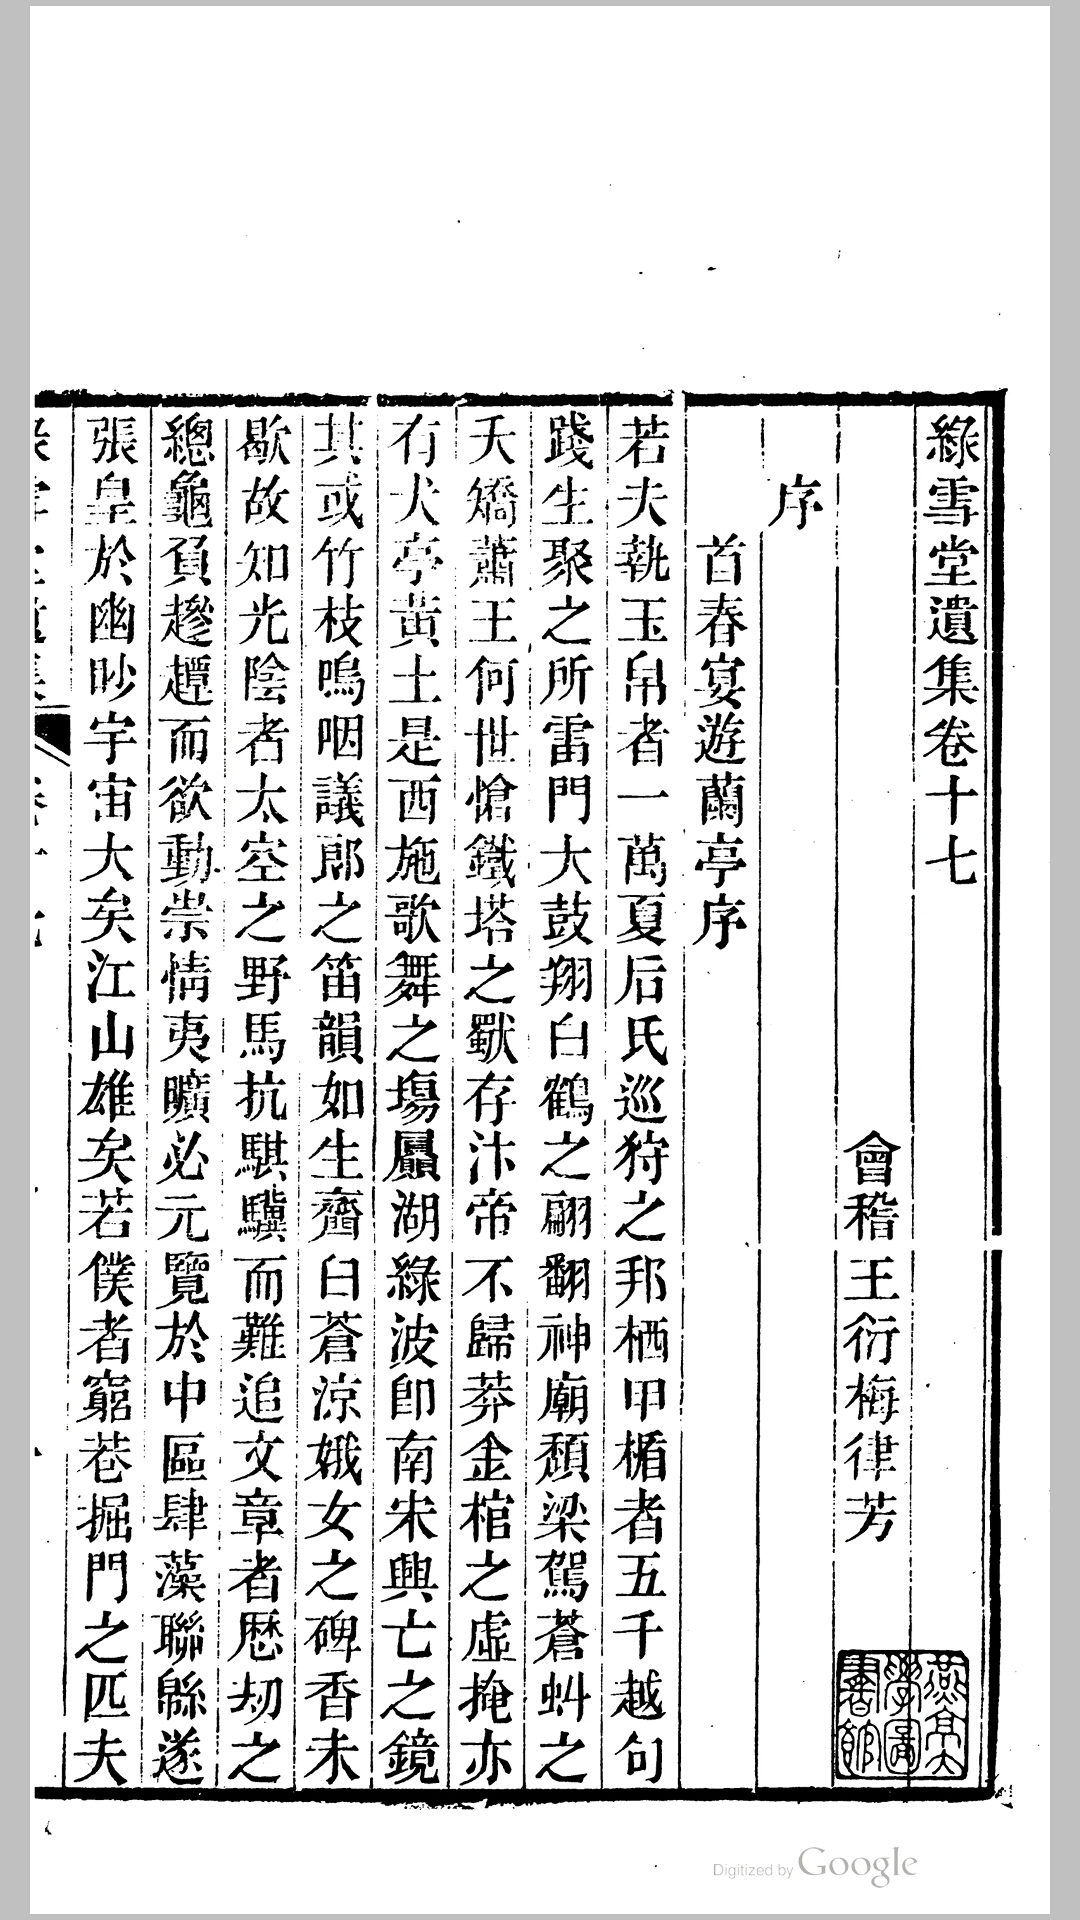 綠雪堂遺集卷十七
會稽王衍梅律芳
序
首春宴遊蘭亭序
若夫執玉帛者一萬夏后氏巡狩之邦栖甲楯者五千越句
踐生聚之所雷門大鼓翔白鶴之翩翻神廟頹梁駕蒼虯之
夭矯蕭王何世愴鐵塔之獸存汴帝不歸莽金棺之虛掩亦
有犬亭黃土是西施歌舞之塲屭湖綠波卽南宋興亡之鏡
其或竹枝嗚咽議郎之笛韻如生虀臼蒼涼娥女之碑香未
歇故知光陰者太空之野馬抗騏驥而難追文章者歷刼之
總龜負趨趯而欲動崇情夷曠必元覽於中區肆藻聯緜遂
張皇於幽眇宇宙大矣江山雄矣若僕者窮巷掘門之匹夫
燕京大學圖書館
Digitized by Google